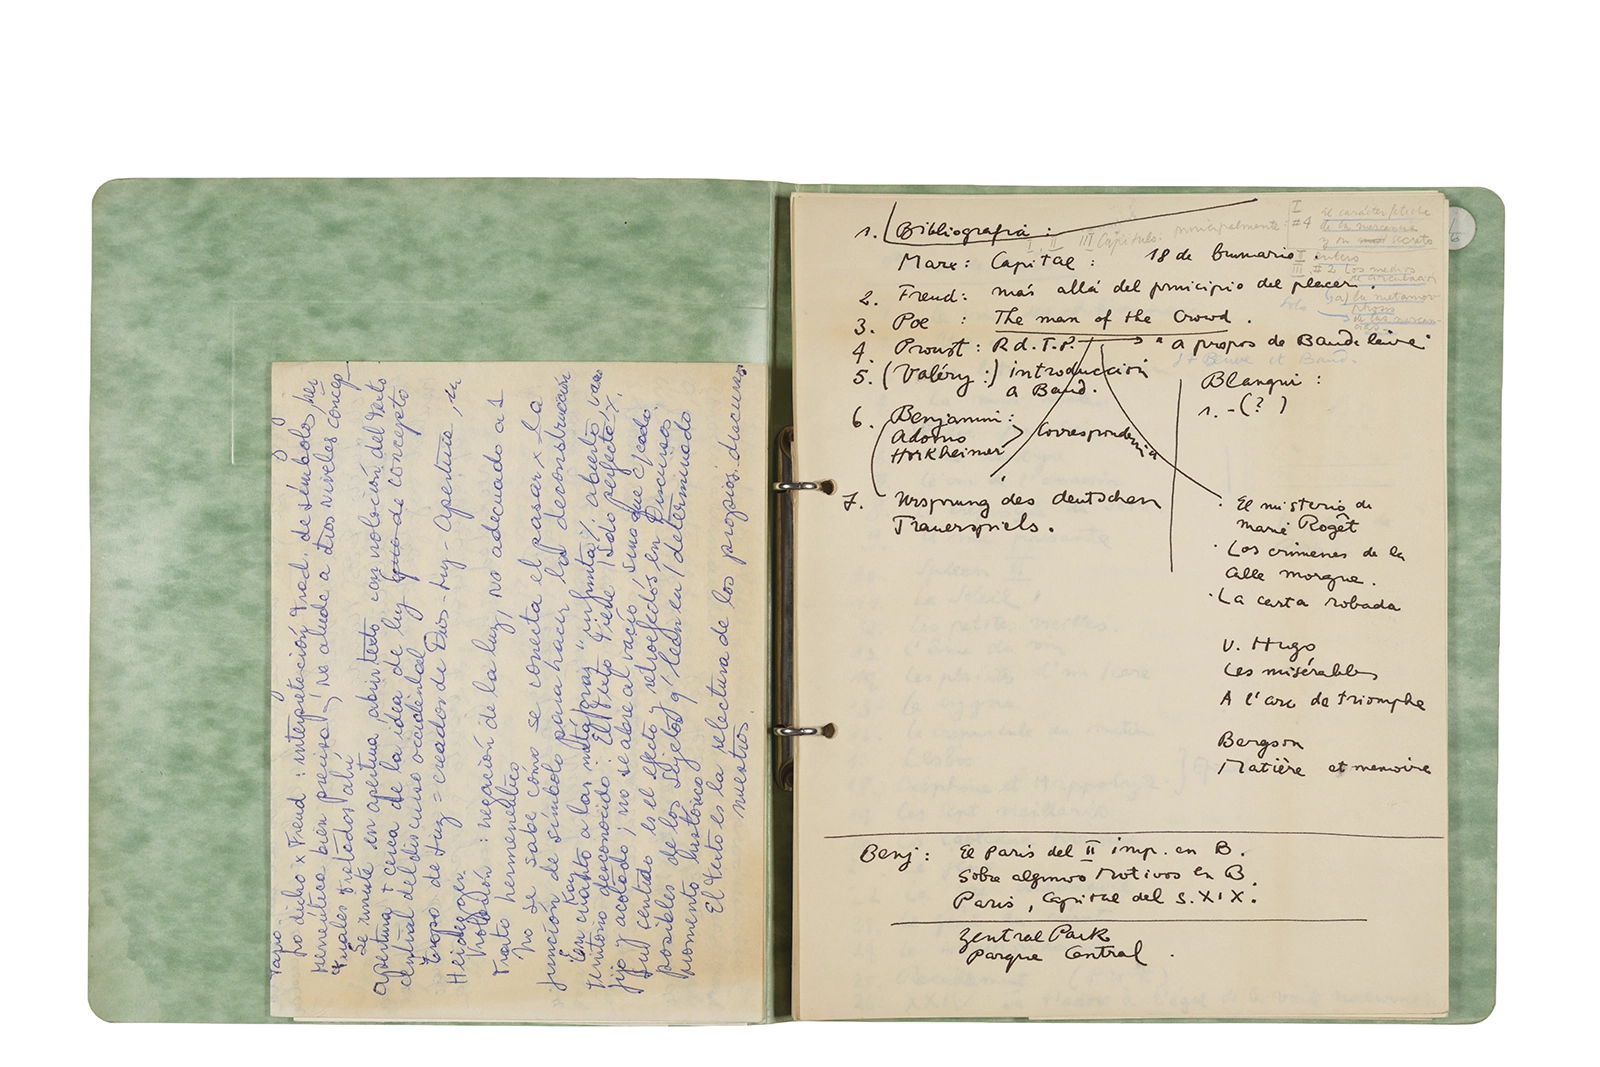 lo dicho x Freud: interpretación trad. de símbolos, her
menéutica bien precisa y no alude a otros niveles concep
tuales tratados ahí
se runute en apertura abrir texto con noloción del texto
apertura + cerca de la idea de luz de concepto
central del discurso occidental
tropo de luz = creados de Dios - luz - apertura, in
Heidegger
: negación de la luz, no adecuado a 1
trato hermenéutico
no se sabe cómo se conecta el pasar x La
función de símbolo para hacer la deconstrucción
En cuanto a las metáforas "infinita", abierto, vaso
territorio desconocido: El texto qiede "sólo perfecto x,
fijo y acotado; no se abre al vacío sino que c/cada
su centro es el efecto y retroefectos en Discursos
posibles de los Sujetos q' lean en 1 determinado
momento histórico
El texto es la relectura de los propios discursos
nuestros.
1. Bibliografía:
I, II III Capítulo: principalmente:
I #4 El carácter fetiche
de la mercancía
y su secreto
Marx: Capital: 18 de brumario.
I entero
III #2 Los medios
de circulación
a) la metamor
fosis
de las mercan
cías
2. Freud: más allá del principio del placer.
3. Poe: The man of the Crowd.
4. Proust: R d. T. P. → "a propos de Baudelaire"
St Beuve et Baud.
5. (Valéry:) introducción
a Baud.
6. Benjamini:
Adorno
Horkheimer
Correspondencia
7. Ursprung des deutschen
Trauerspiels.
Blanqui:
1. - (?)
· El misterio de
Marie Rogêt
· Los crímenes de la
calle morgue.
· La carta robada
V. Hugo
Les misérables
A l'arc de triomphe
Bergson
Matière et memoire
Benj: El París del II imp. en B.
Sobre algunos Motivos en B.
París, Capital del S. XIX.
Zentral Park
Parque Central.